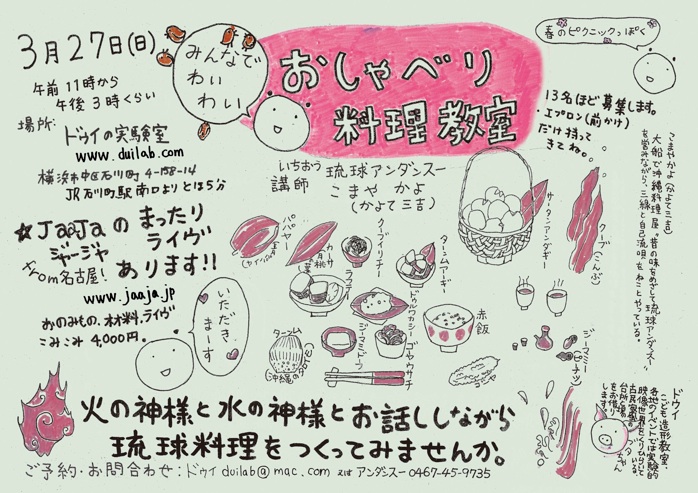 3月27日(日)
午前11時から
午後3時くらい
場所:
ドゥイの実験室
www.duilab.com
横浜市中区石川町4-158-14
JR石川町駅南口よりとほ5分
みんなで
わい
わい
おしゃべり
料理教室
春のピクニックっぽく
13名ほど募集します。
・エプロン(前かけ)
だけ持って
きてね。
いちおう
講師
琉球アンダンスー
こまや かよ
(かよて三吉)
☆JaaJaのまったり
ジャージャ
ライヴ
from名古屋!
あります!!
www.jaaja.jp
おのみもの、材料、ライヴ
こみこみ 4,000円
いただき
まーす
こまやかよ(かよて三吉)
大船で沖縄料理屋“昔の味をめざして琉球アンダンスー”
を営みながら、三線と自己流唄をねことやっている。
パパヤ
クーブイリチー
ターンムアーギー
サーターアンダギー
クーブ(こんぶ)
ラフテー
ドゥルワカシー
赤飯
ターンム
ジーマミドーフ
ゴーヤウサチ
ジーマミー
(ピーナツ)
ドゥイ
こども造形教室、
火の神様と水の神様とお話ししながら
琉球料理をつくってみませんか。
ご予約・お問合わせ:ドゥイ duilab@mac.com 又は アンダンスー 0467-45-9735